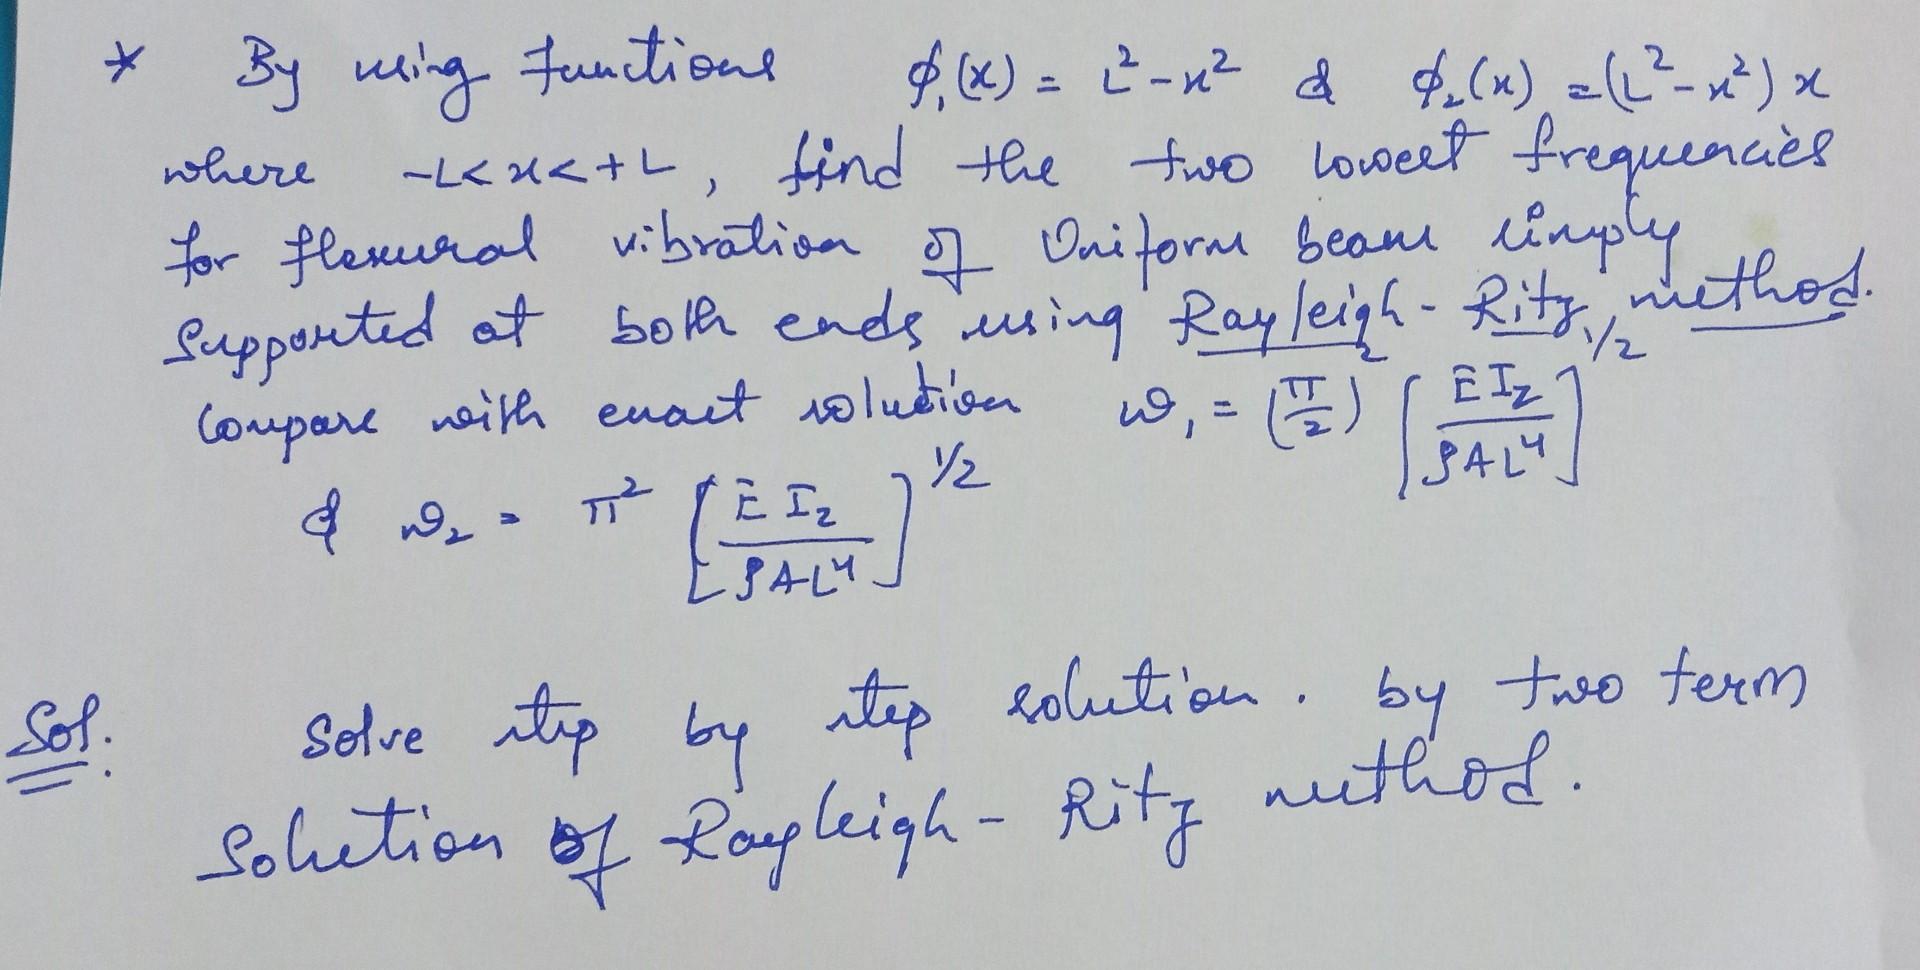 * By using functions ϕ₁(x) = L² - x² & ϕ₂(x) = (L² - x²) x
where -L < x < +L, find the two lowest frequencies
for flexural vibration of Uniform beam simply
supported at both ends using Rayleigh - Ritz method.
Compare with exact solution ω₁ = (π/2)² [EI_z/ρAL⁴]^1/2
& ω₂ = π² [EI_z/ρAL⁴]^1/2
Sol. Solve step by step solution. by two term
Solution of Rayleigh - Ritz method.